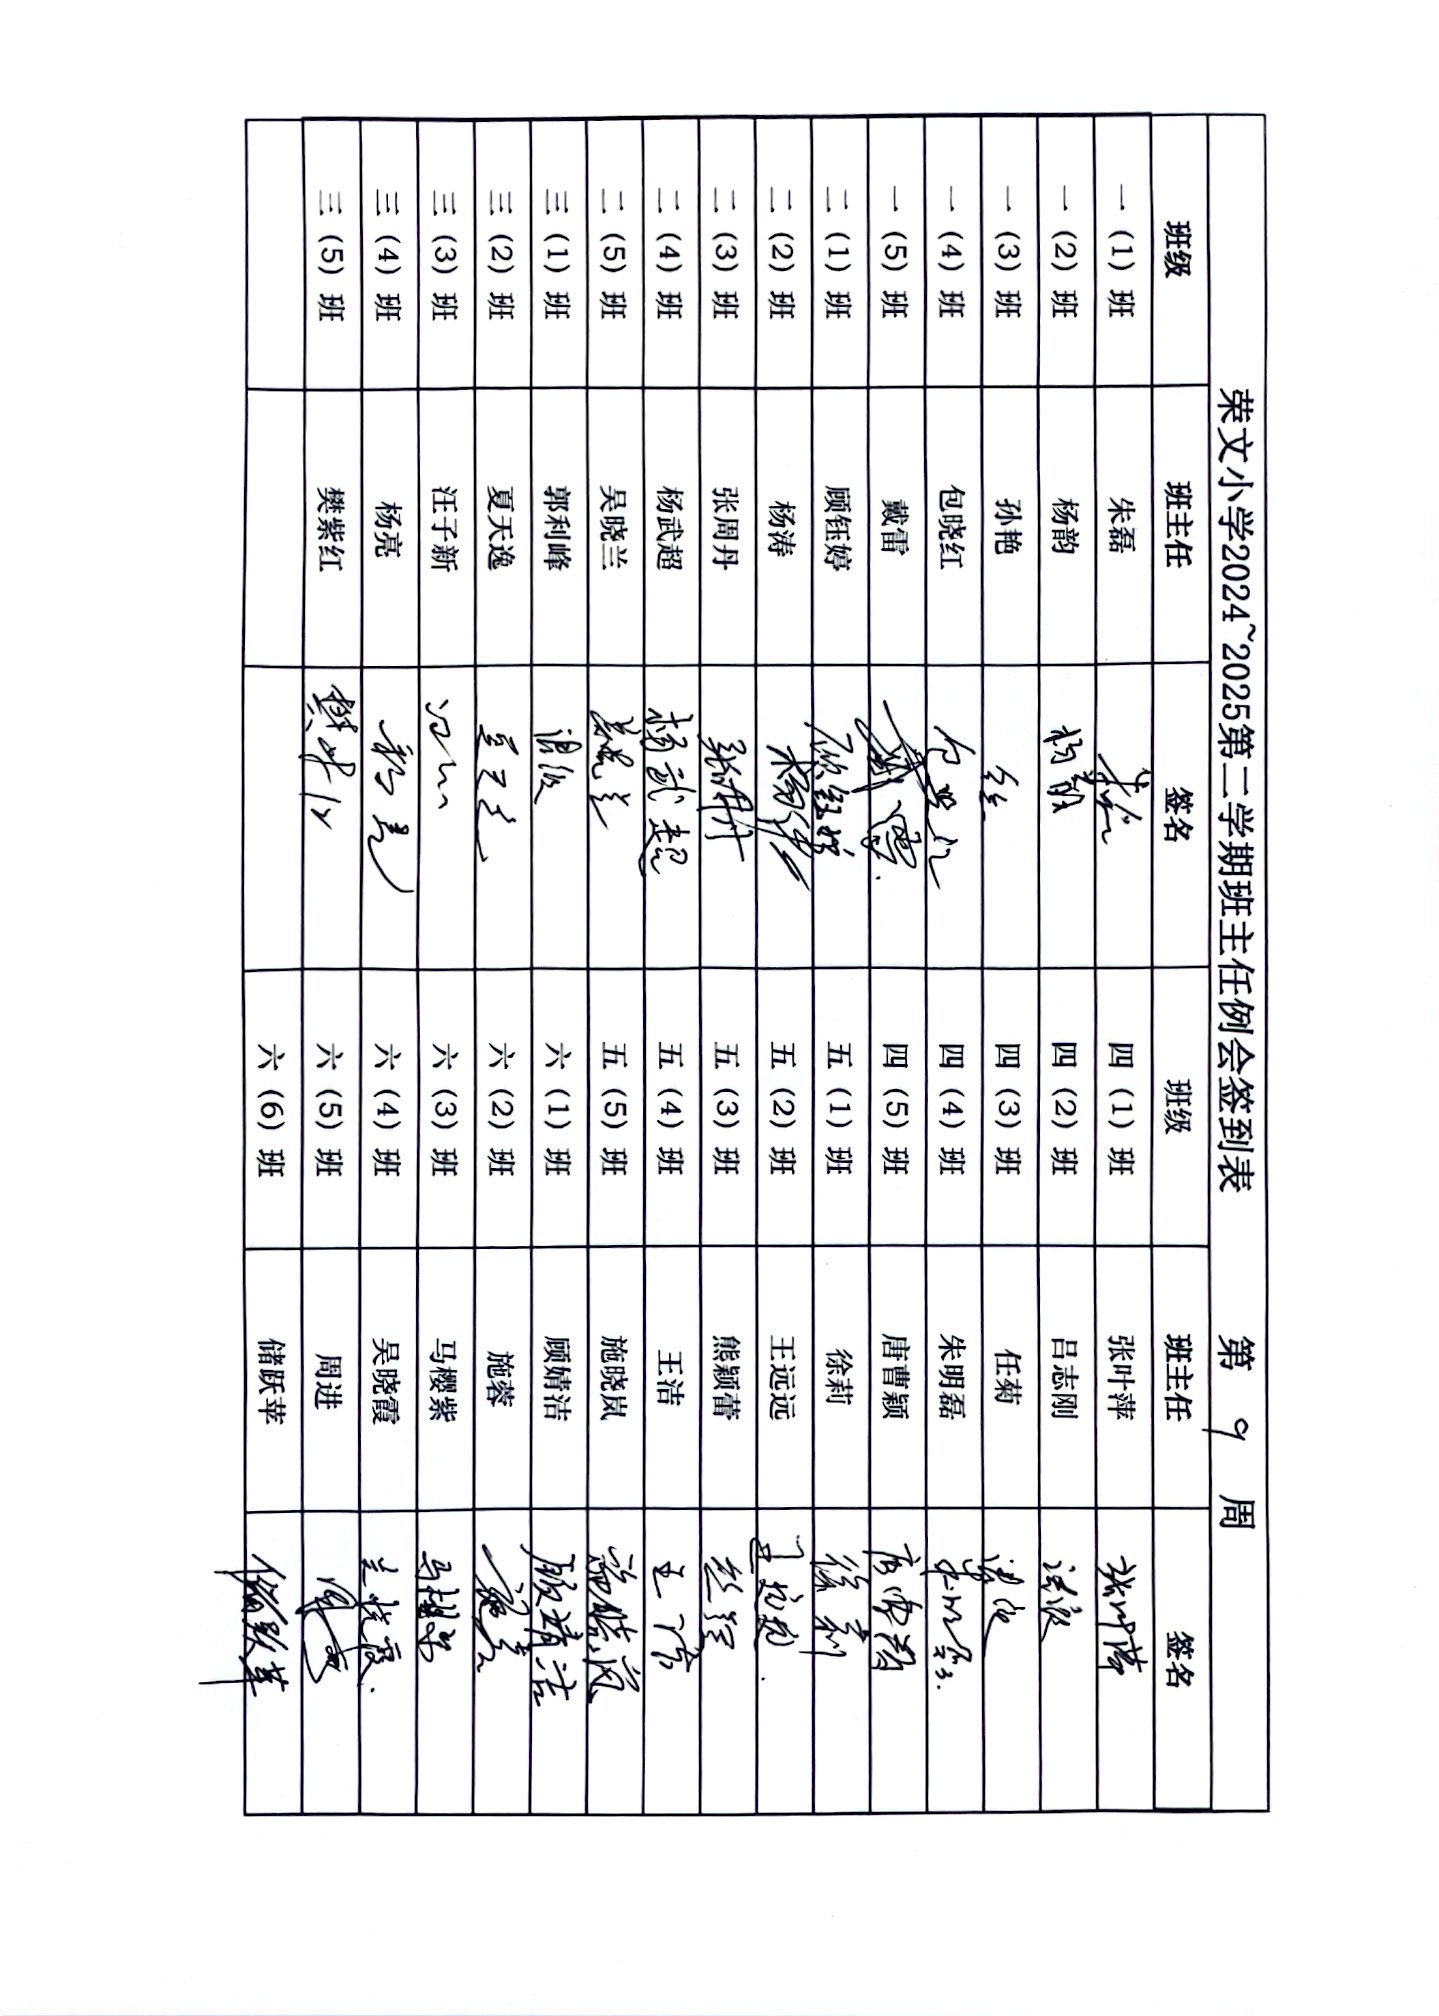 荣文小学2024~2025第二学期班主任例会签到表 第 9 周
班级 班主任 签名 班级 班主任 签名
一（1）班 朱磊 四（1）班 张叶萍 张叶萍
一（2）班 杨韵 杨韵 四（2）班 吕志刚
一（3）班 孙艳 四（3）班 任菊
一（4）班 包晓红 四（4）班 朱明磊
一（5）班 戴雷 戴雷 四（5）班 唐曹颖
二（1）班 顾钰婷 顾钰婷 五（1）班 徐莉 徐莉
二（2）班 杨涛 杨涛 五（2）班 王远远
二（3）班 张周丹 五（3）班 熊颖蕾
二（4）班 杨武超 杨武超 五（4）班 王洁 王洁
二（5）班 吴晓兰 五（5）班 施晓岚
三（1）班 郭利峰 六（1）班 顾婧洁 顾婧洁
三（2）班 夏天逸 六（2）班 施蓉
三（3）班 汪子新 六（3）班 马樱紫
三（4）班 杨亮 杨亮 六（4）班 吴晓霞 吴晓霞
三（5）班 樊紫红 六（5）班 周进
六（6）班 储跃苹 储跃苹